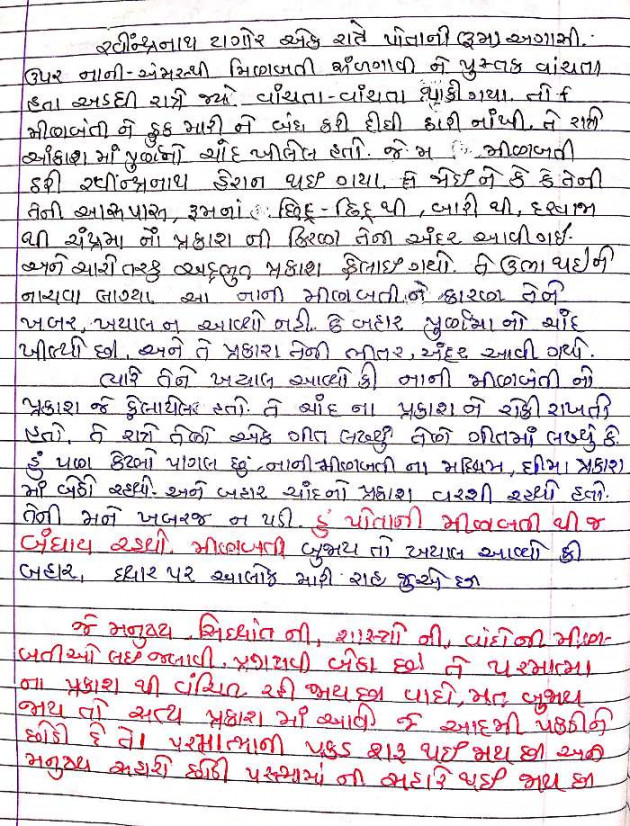 રવીન્દ્રનાથ ટાગોર એક રાતે પોતાની (રૂમ) અગાસી.
ઉપર નાની-અમસ્થી મિણબતી સળગાવી ને પુસ્તક વાંચતા
હતા અડધી રાત્રે જ્યે. વાંચતા-વાંચતા થાકી ગયા. તો
મીણબતી ને ફુક મારી ને બંધ કરી દીધી ઠારી નાંખી. તે રાત્રી
આકાશ માં પુર્ણિમાનો ચાંદ ખીલેલ હતો. જેમ મીણબતી
ઠરી રવીન્દ્રનાથ હેરાન થઈ ગયા. તે જોઈ ને કે કે તેની
તેની આસપાસ, રૂમનાં છિદ્ર-છિદ્ર થી, બારી થી, દરવાજા
થી ચંદ્રમા નો પ્રકાશ ની કિરણ તેના અંદર આવી ગઈ.
અને ચારી તરફ અદભુત પ્રકાશ ફેલાઈ ગયો. તે ઉભા થઈ ને
નાચવા લાગ્યા. આ નાની મીણબતી ને કારણ તેને
ખબર, ખયાલ ન આવ્યો નહી. કે બહાર પુર્ણિમા નો ચાંદ
ખીલ્યો છે, અને તે પ્રકાશ તેની ભીતર, અંદર આવી ગયો.
ત્યારે તેને ખયાલ આવ્યો કી નાની મીણબતી નો
પ્રકાશ જે ફેલાયેલ હતો. તે ચાંદ ના પ્રકાશ ને રોકી રાખતી
હતો. તે રાત્રે તેણે એક ગીત લખ્યું તેણે ગીતમાં લખ્યું કે.
હું પણ કેટલો પાગલ છું. નાની મીણબતી ના મધ્યિમ, ધીમા પ્રકાશ
માં બેઠો રહ્યો. અને બહાર ચાંદનો પ્રકાશ વરશી રહ્યો હતો.
તેની મને ખબરજ ન પડી. હું પોતાની મીણબતી થી જ
બંધાય રહ્યો. મીણબતી બુજાય તો ખયાલ આવ્યો કી
બહાર, દ્વાર પર આલોક મારી રાહ જુએ છે
જે મનુષ્ય સિધ્ધાંત ની, શાસ્ત્રો ની, વાદોની મીણ-
બતીઓ લઈ જલાવી, પ્રજાળવી બેઠા છે. તે પરમાત્મા
ના પ્રકાશ થી વંચિત રહી જાય છે વાદો, મત બુજાય
જાય તો સત્ય પ્રકાશ માં આવી જે આદમી પકડીને
છોડી દે તે। પરમાત્માની પકડ શરૂ થઈ જાય છે અને
મનુષ્ય છોડી ની થઈ જાય છે